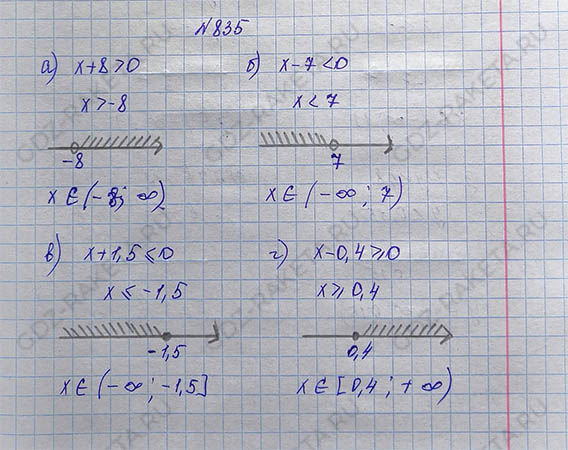 №835
а) x+8>0
x>-8
-8
x∈(-8; ∞)
б) x-7<0
x<7
7
x∈(-∞; 7)
в) x+1,5≤0
x≤-1,5
-1,5
x∈(-∞; -1,5]
г) x-0,4≥0
x≥0,4
0,4
x∈[0,4; +∞)
GDZ-RAKETA.RU